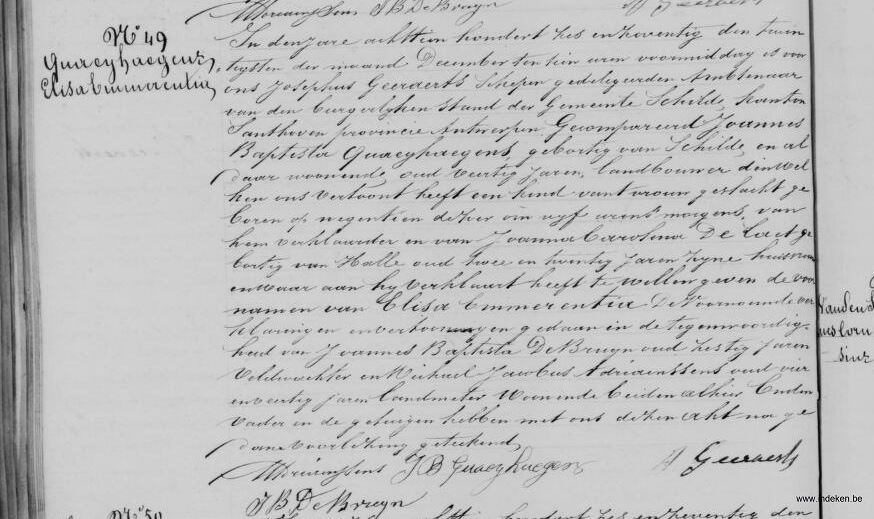 Adriaenssens J B De Bruyn A Geeraerts
N° 49
Quaeyhaegens,
Elisa Emmerentia
In den jare achttien hondert zes en zeventig den twin
tigsten der maand December ten tien uren voormiddag is voor
ons Josephus Geeraerts Schepen gedelegeerden Ambtenaar
van den burgerlyken stand der Gemeente Schilde, Kanton
Santhoven provincie Antwerpen, Gecompareerd Joannes
Baptista Quaeyhaegens, gebortig van Schilde, en al
daar woonende, oud veertig jaren, landbouwer, dewel
ken ons vertoont heeft een kind van t vrouw geslacht ge
boren op negentien dezer om vyf uren 's morgens, van
hem verklaarder en van Joanna Carolina De Laet ge
bortig van Halle oud twee en twintig jaren zyne huisvrouw
en waar aan hy verklaart heeft te willen geven de voor
namen van Elisa Emmerentia De voornoemde ver
klaringen en vertooningen gedaan in de tegenwoordig-
heid van Joannes Baptista De Bruyn oud zestig jaren
Veldwachter en Michael Jacobus Adriaenssens oud vier
en veertig jaren landmeter Woonende beiden alhier Ende
vader en de getuigen hebben met ons dezen acht na ge
dane voorlezing geteekend,
Adriaenssens J B Quaeyhaegens A Geeraerts
J B De Bruyn
N° 50
zes en zeventig den
Van den
www.indeken.be